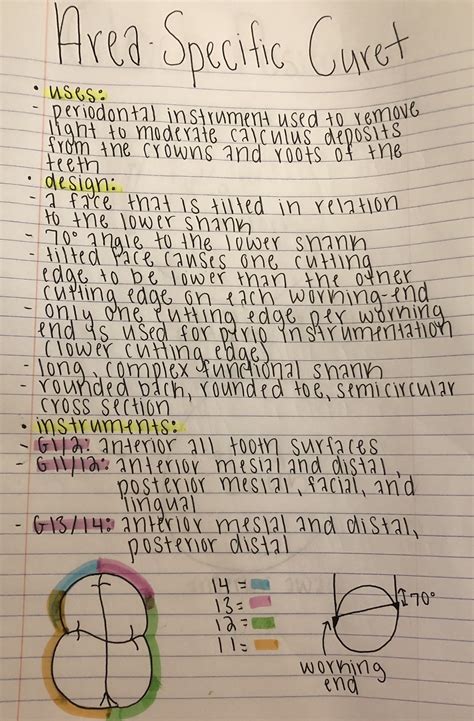 Area-Specific Curet
• uses:
- periodontal instrument used to remove
light to moderate calculus deposits
from the crowns and roots of the
teeth
• design:
- a face that is tilted in relation
to the lower shank
- 70° angle to the lower shank
- tilted face causes one cutting
edge to be lower than the other
cutting edge on each working-end
- only one cutting edge per working
end is used for perio instrumentation
(lower cutting edge)
- long, complex functional shank
- rounded back, rounded toe, semicircular
cross section
• instruments:
- G1/2: anterior all tooth surfaces
- G11/12: anterior mesial and distal,
posterior mesial, facial, and
lingual
- G13/14: anterior mesial and distal,
posterior distal
14 =
13 =
12 =
11 =
70°
working
end